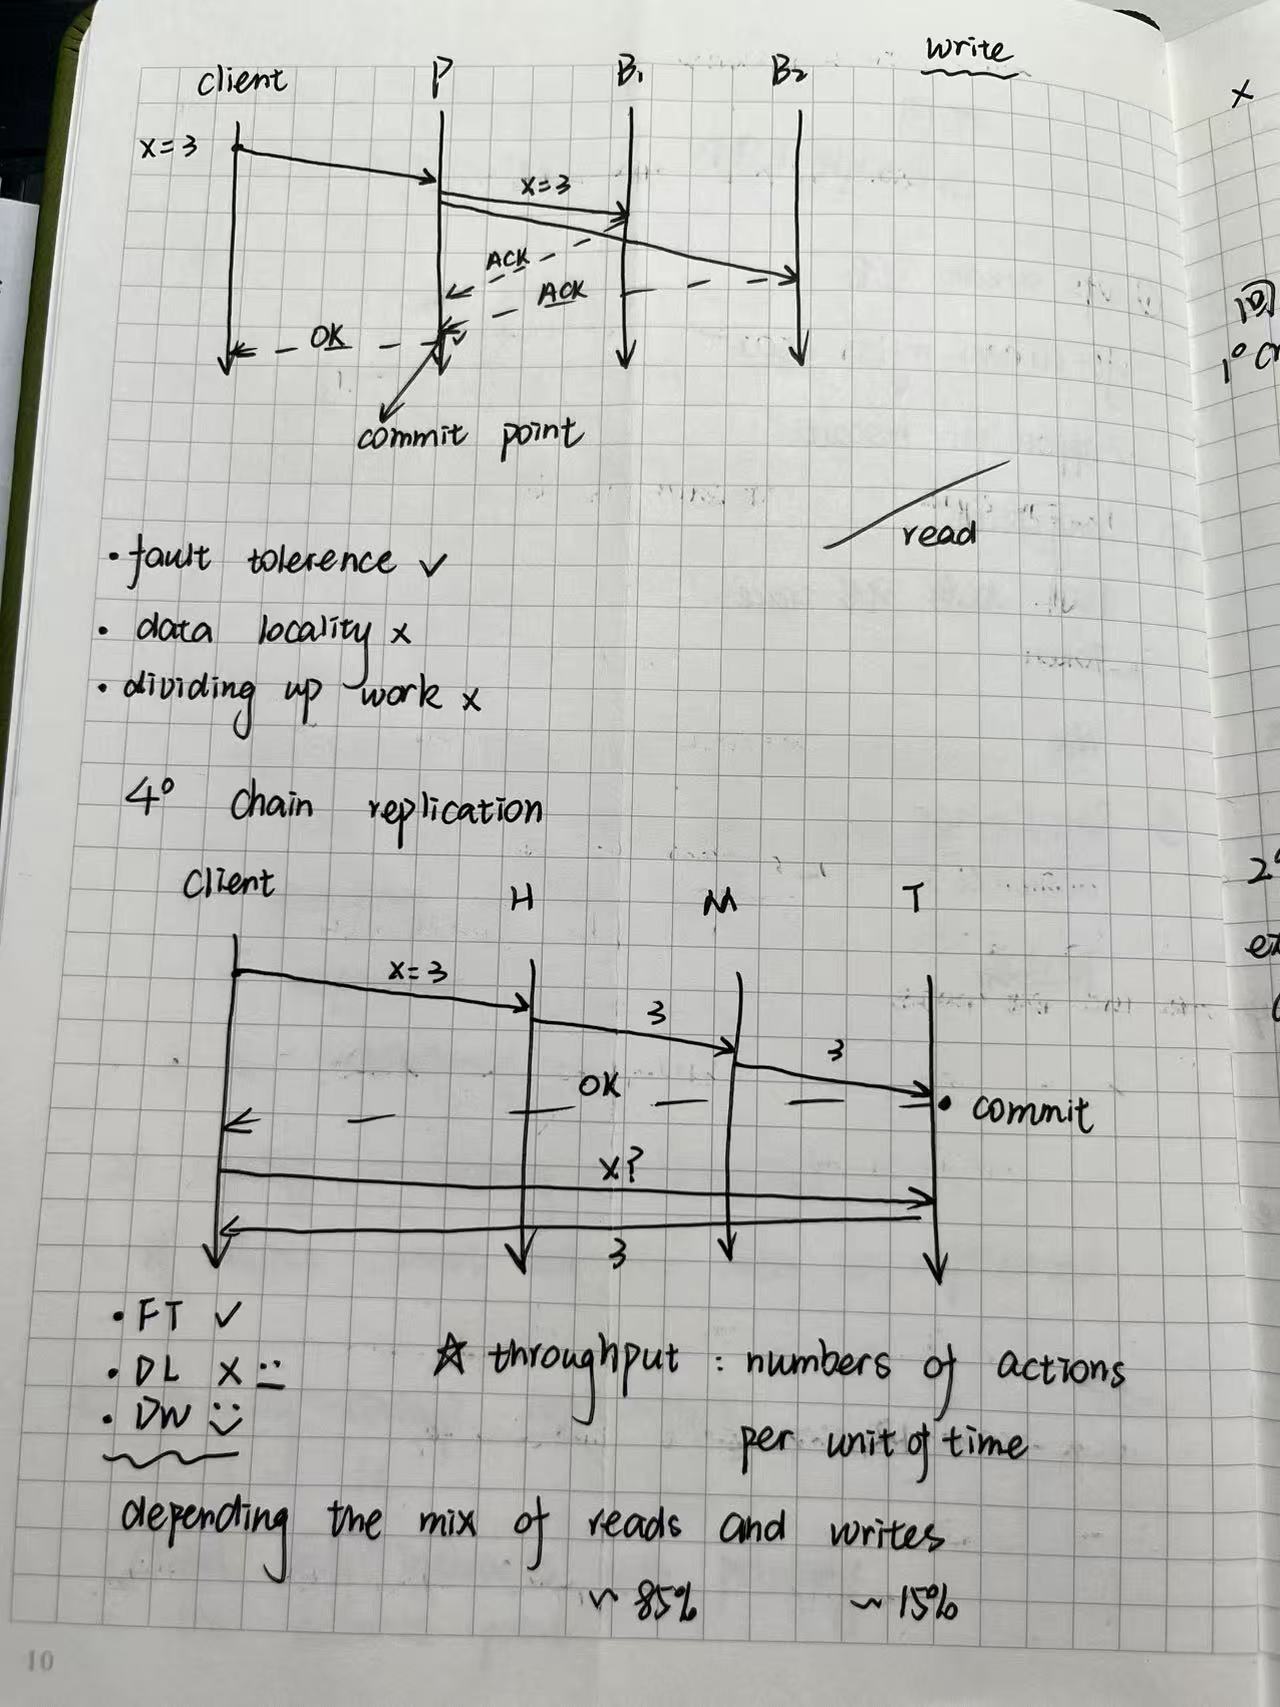 write
client P B₁ B₂
x=3
x=3
ACK
ACK
OK
commit point
read
• fault tolerence ✓
• data locality x
• dividing up work x
4° chain replication
client H M T
x=3
3
3
OK
• commit
x?
3
• FT ✓
• DL x
• DW
☆ throughput : numbers of actions
per unit of time
depending the mix of reads and writes
~ 85% ~ 15%
10
x
1°
2°